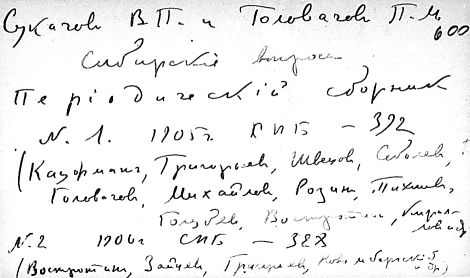 Сукачов В П. и Головачов П. М.
600
Сибирскіе вопросы
Періодическій сборник
N. 1. 1905г. СПБ – 392
(Кауфман, Григорьев, Швецов, Соболев,
Головачев, Михайлов, Розин,
Голубев, Востротин,
N. 2 1906г СПБ – 328
(Востротин, Зайцев, Григорьев, и др.)